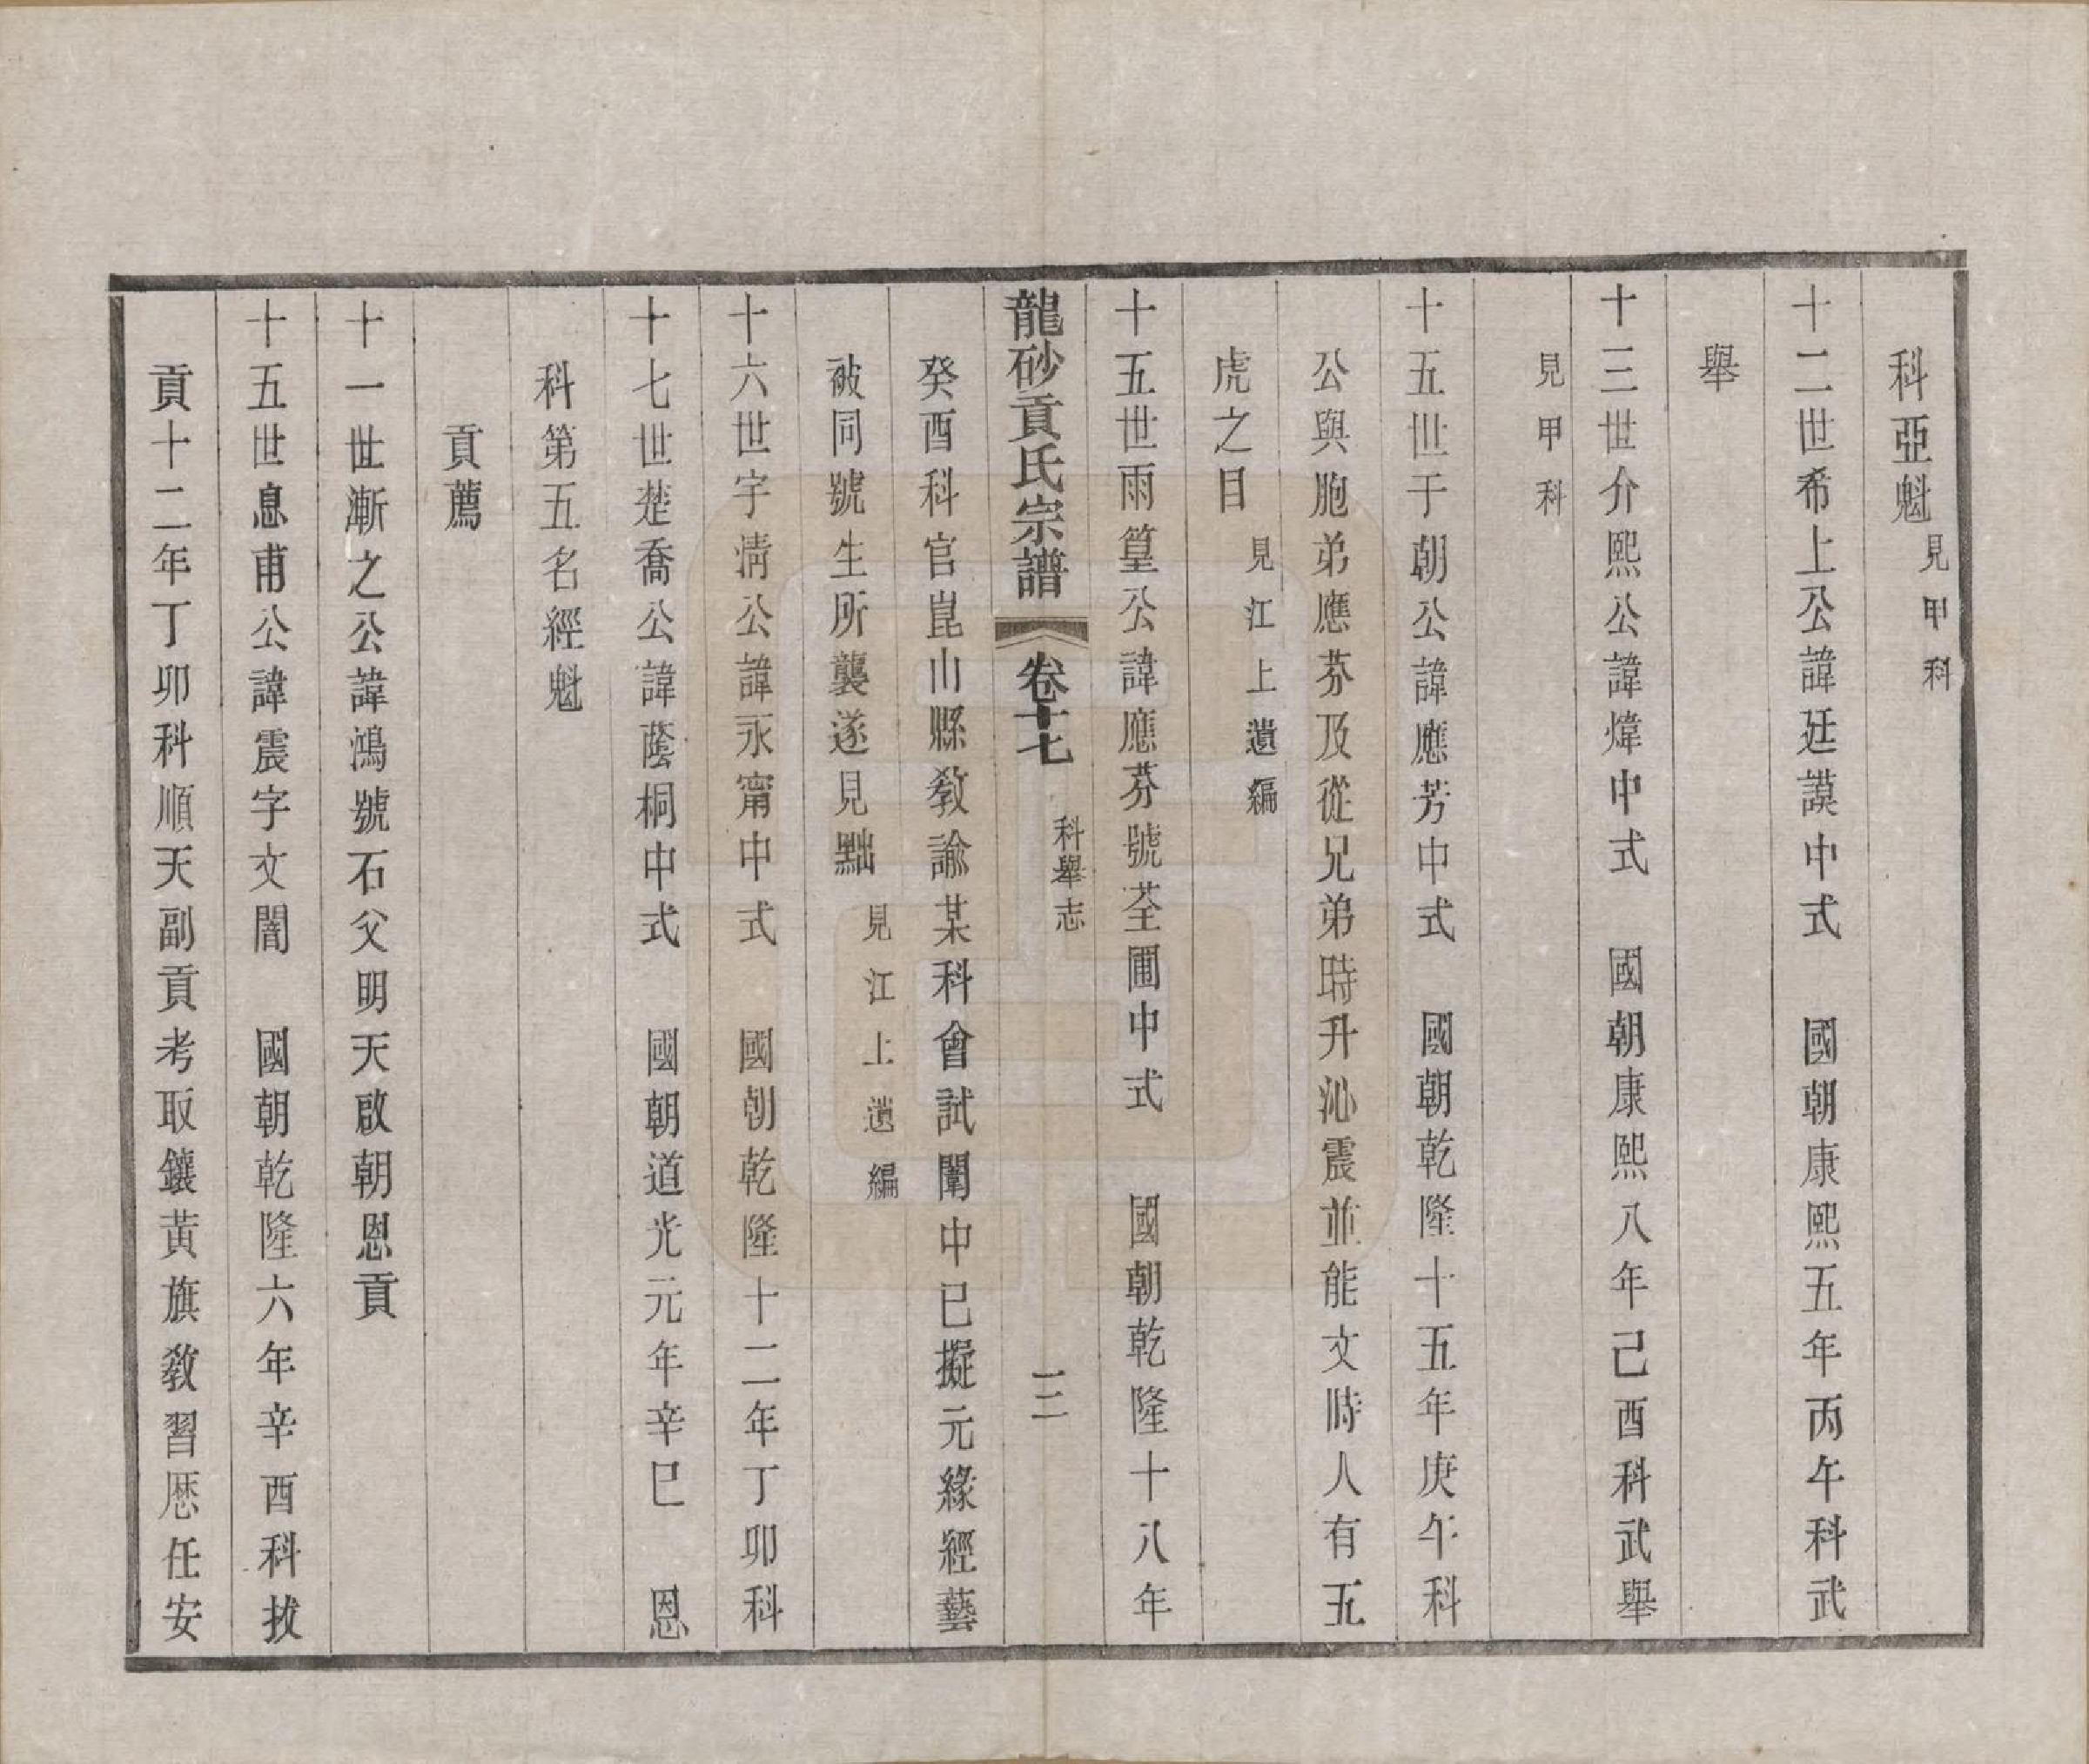 科亞魁見甲科
十二世希上公諱廷謨中式　國朝康熙五年丙午科武
舉
十三世介熙公諱煒中式　國朝康熙八年己酉科武舉
見甲科
十五世于朝公諱應芳中式　國朝乾隆十五年庚午科
公與胞弟應芬及從兄弟時升沁震並能文時人有五
虎之目見江上遺編
十五世雨篁公諱應芬號荃圃中式　國朝乾隆十八年
龍砂貢氏宗譜　卷十七　科舉志　三
癸酉科官崑山縣教諭某科會試闈中已擬元緣經藝
被同號生所襲遂見黜見江上遺編
十六世宇淸公諱永甯中式　國朝乾隆十二年丁卯科
十七世楚喬公諱蔭桐中式　國朝道光元年辛巳　恩
科第五名經魁
貢薦
十一世漸之公諱鴻號石父明天啟朝恩貢
十五世息甫公諱震字文闇　國朝乾隆六年辛酉科拔
貢十二年丁卯科順天副貢考取鑲黃旗教習歷任安